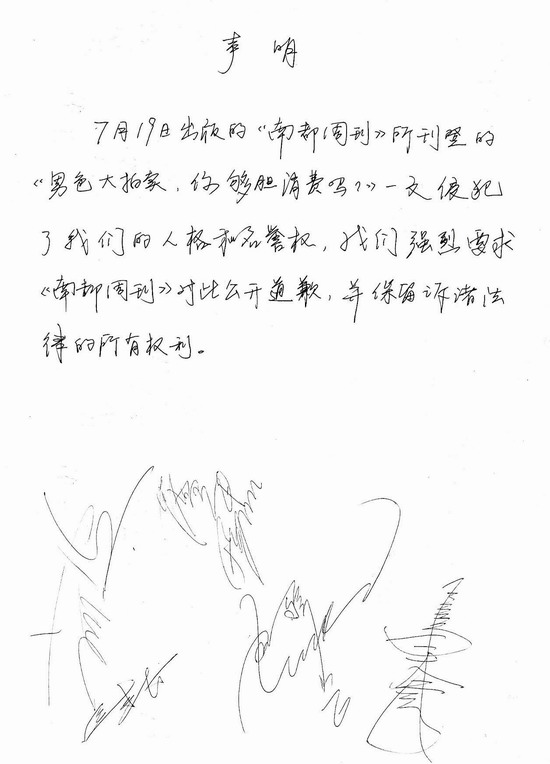 声明
7月19日出版的《南都周刊》所刊登的
《男色大拍卖,你够胆消费吗?》一文侵犯
了我们的人格和名誉权,我们强烈要求
《南都周刊》对此公开道歉,并保留诉诸法
律的所有权利。